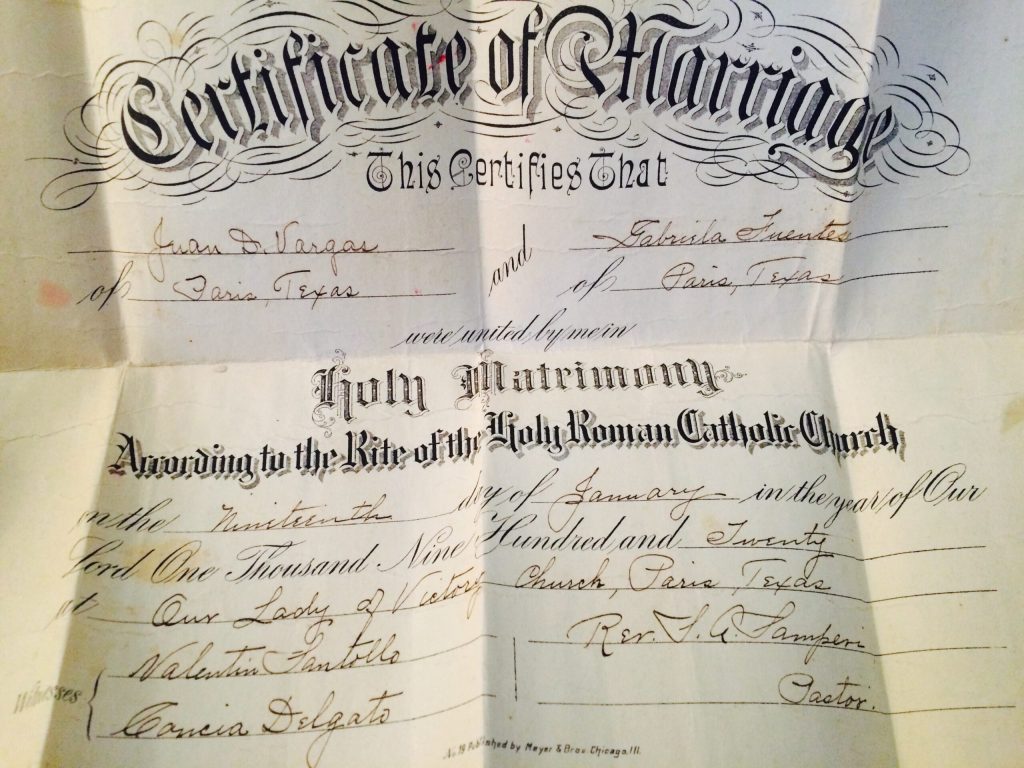 Certificate of Marriage
This Certifies That
Juan D. Vargas and Gabriela Fuentes
of Paris, Texas of Paris, Texas
were united by me in
Holy Matrimony
According to the Rite of the Holy Roman Catholic Church
on the Nineteenth day of January in the year of Our
Lord One Thousand Nine Hundred and Twenty
at Our Lady of Victory Church, Paris, Texas
Valentin Rev. S. A. Samperi
Witnesses Delgato Pastor.
No. 19 Published by Meyer & Bro. Chicago, Ill.